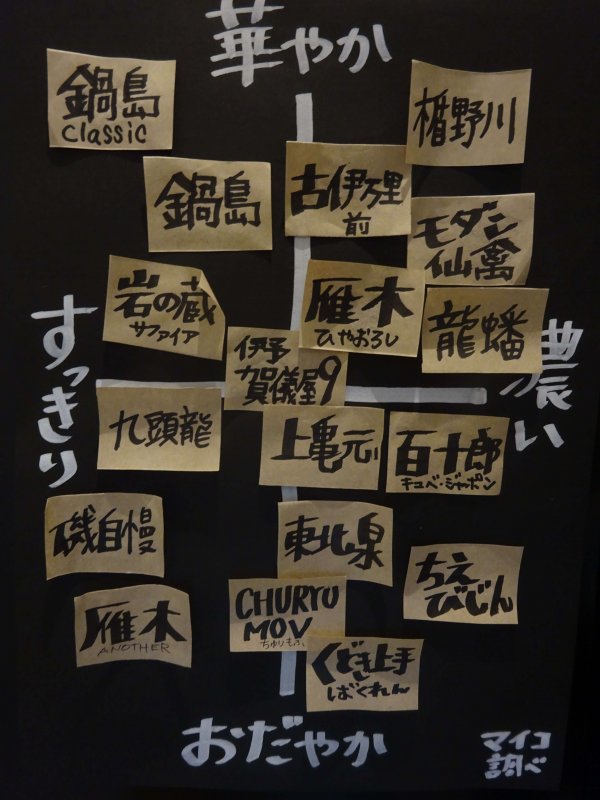 華やか
鍋島
Classic
楯野川
鍋島
古伊万里
前
モダン
仙禽
岩の蔵
サファイア
雁木
ひやおろし
龍蟠
すっきり
濃い
伊予
賀儀屋9
九頭龍
上亀元
百十郎
キュベ・ジャポン
磯自慢
東北泉
ちえ
びじん
雁木
ANOTHER
CHURYO
MOV
ちゅりもぶ
くどき上手
ばくれん
おだやか
マイコ
調べ